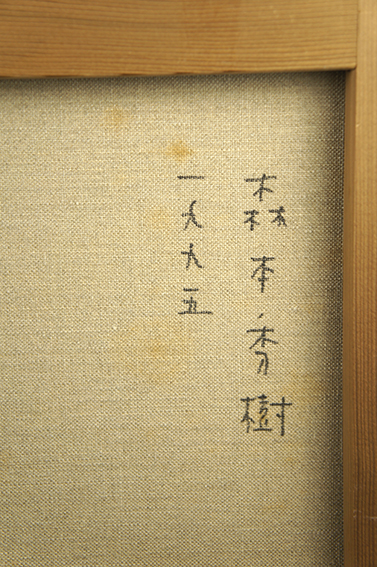 森本秀樹
一九九五